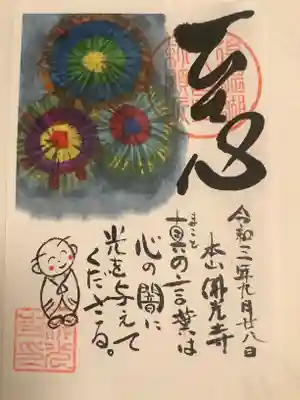 令和年九月廿八日
本山佛光寺
まこと
真の言葉は
心の闇に
光を与えて
くださる。